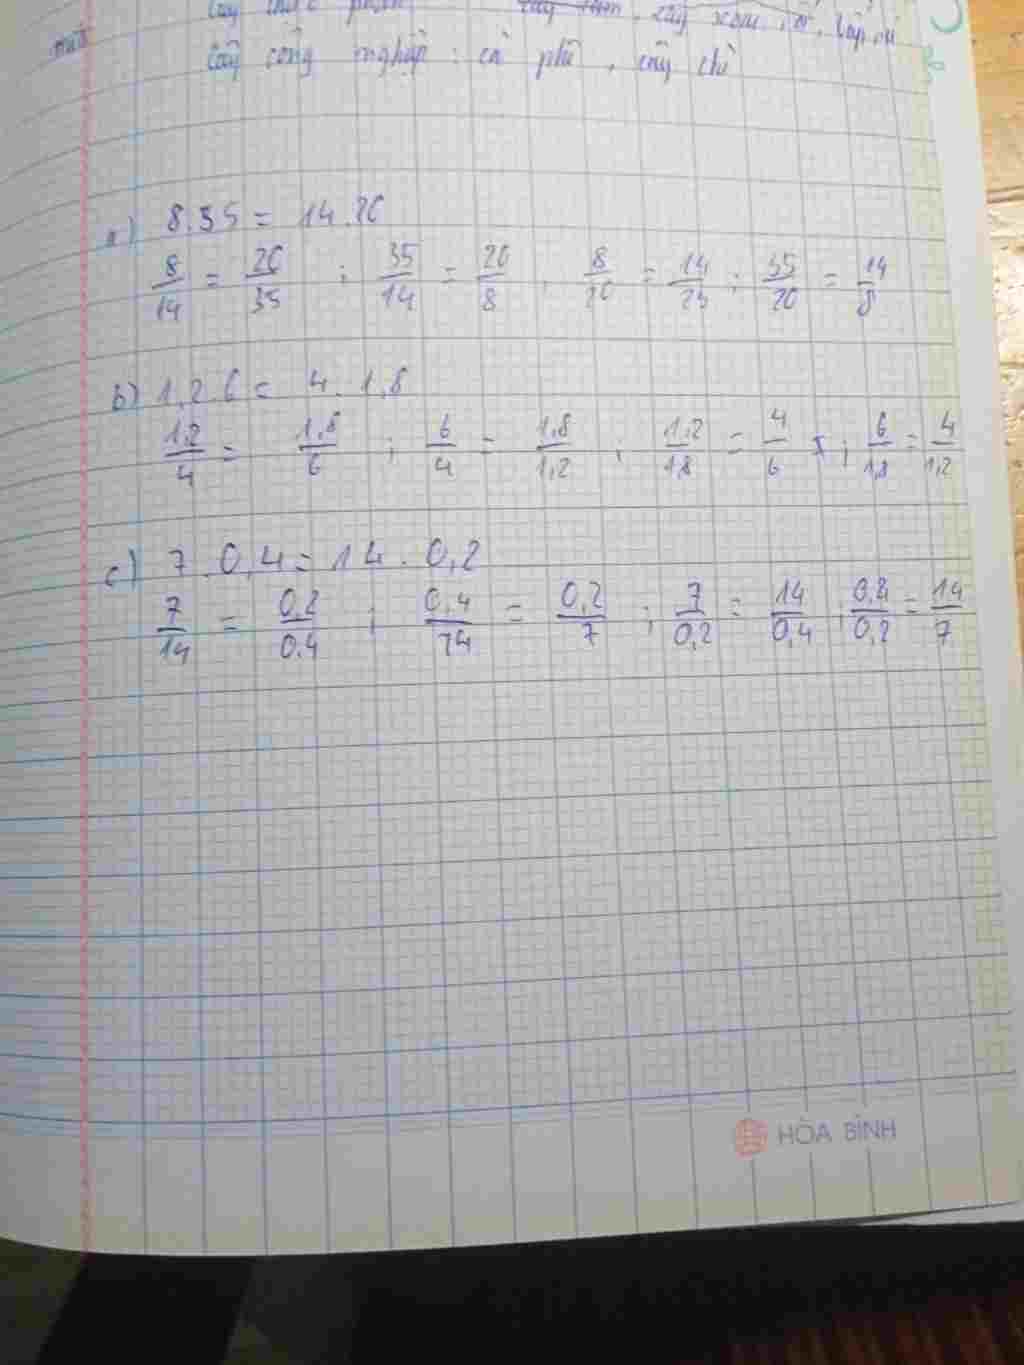 cây công nghiệp : cà phê , cây chè
a) 8.35 = 14.20
8/14 = 20/35 ; 35/14 = 20/8 ; 8/20 = 14/35 ; 35/20 = 14/8
b) 1,2.6 = 4.1,8
1,2/4 = 1,8/6 ; 6/4 = 1,8/1,2 ; 1,2/1,8 = 4/6 ; 6/1,8 = 4/1,2
c) 7.0,4 = 14.0,2
7/14 = 0,2/0,4 ; 0,4/14 = 0,2/7 ; 7/0,2 = 14/0,4 ; 0,4/0,2 = 14/7
HÒA BÌNH